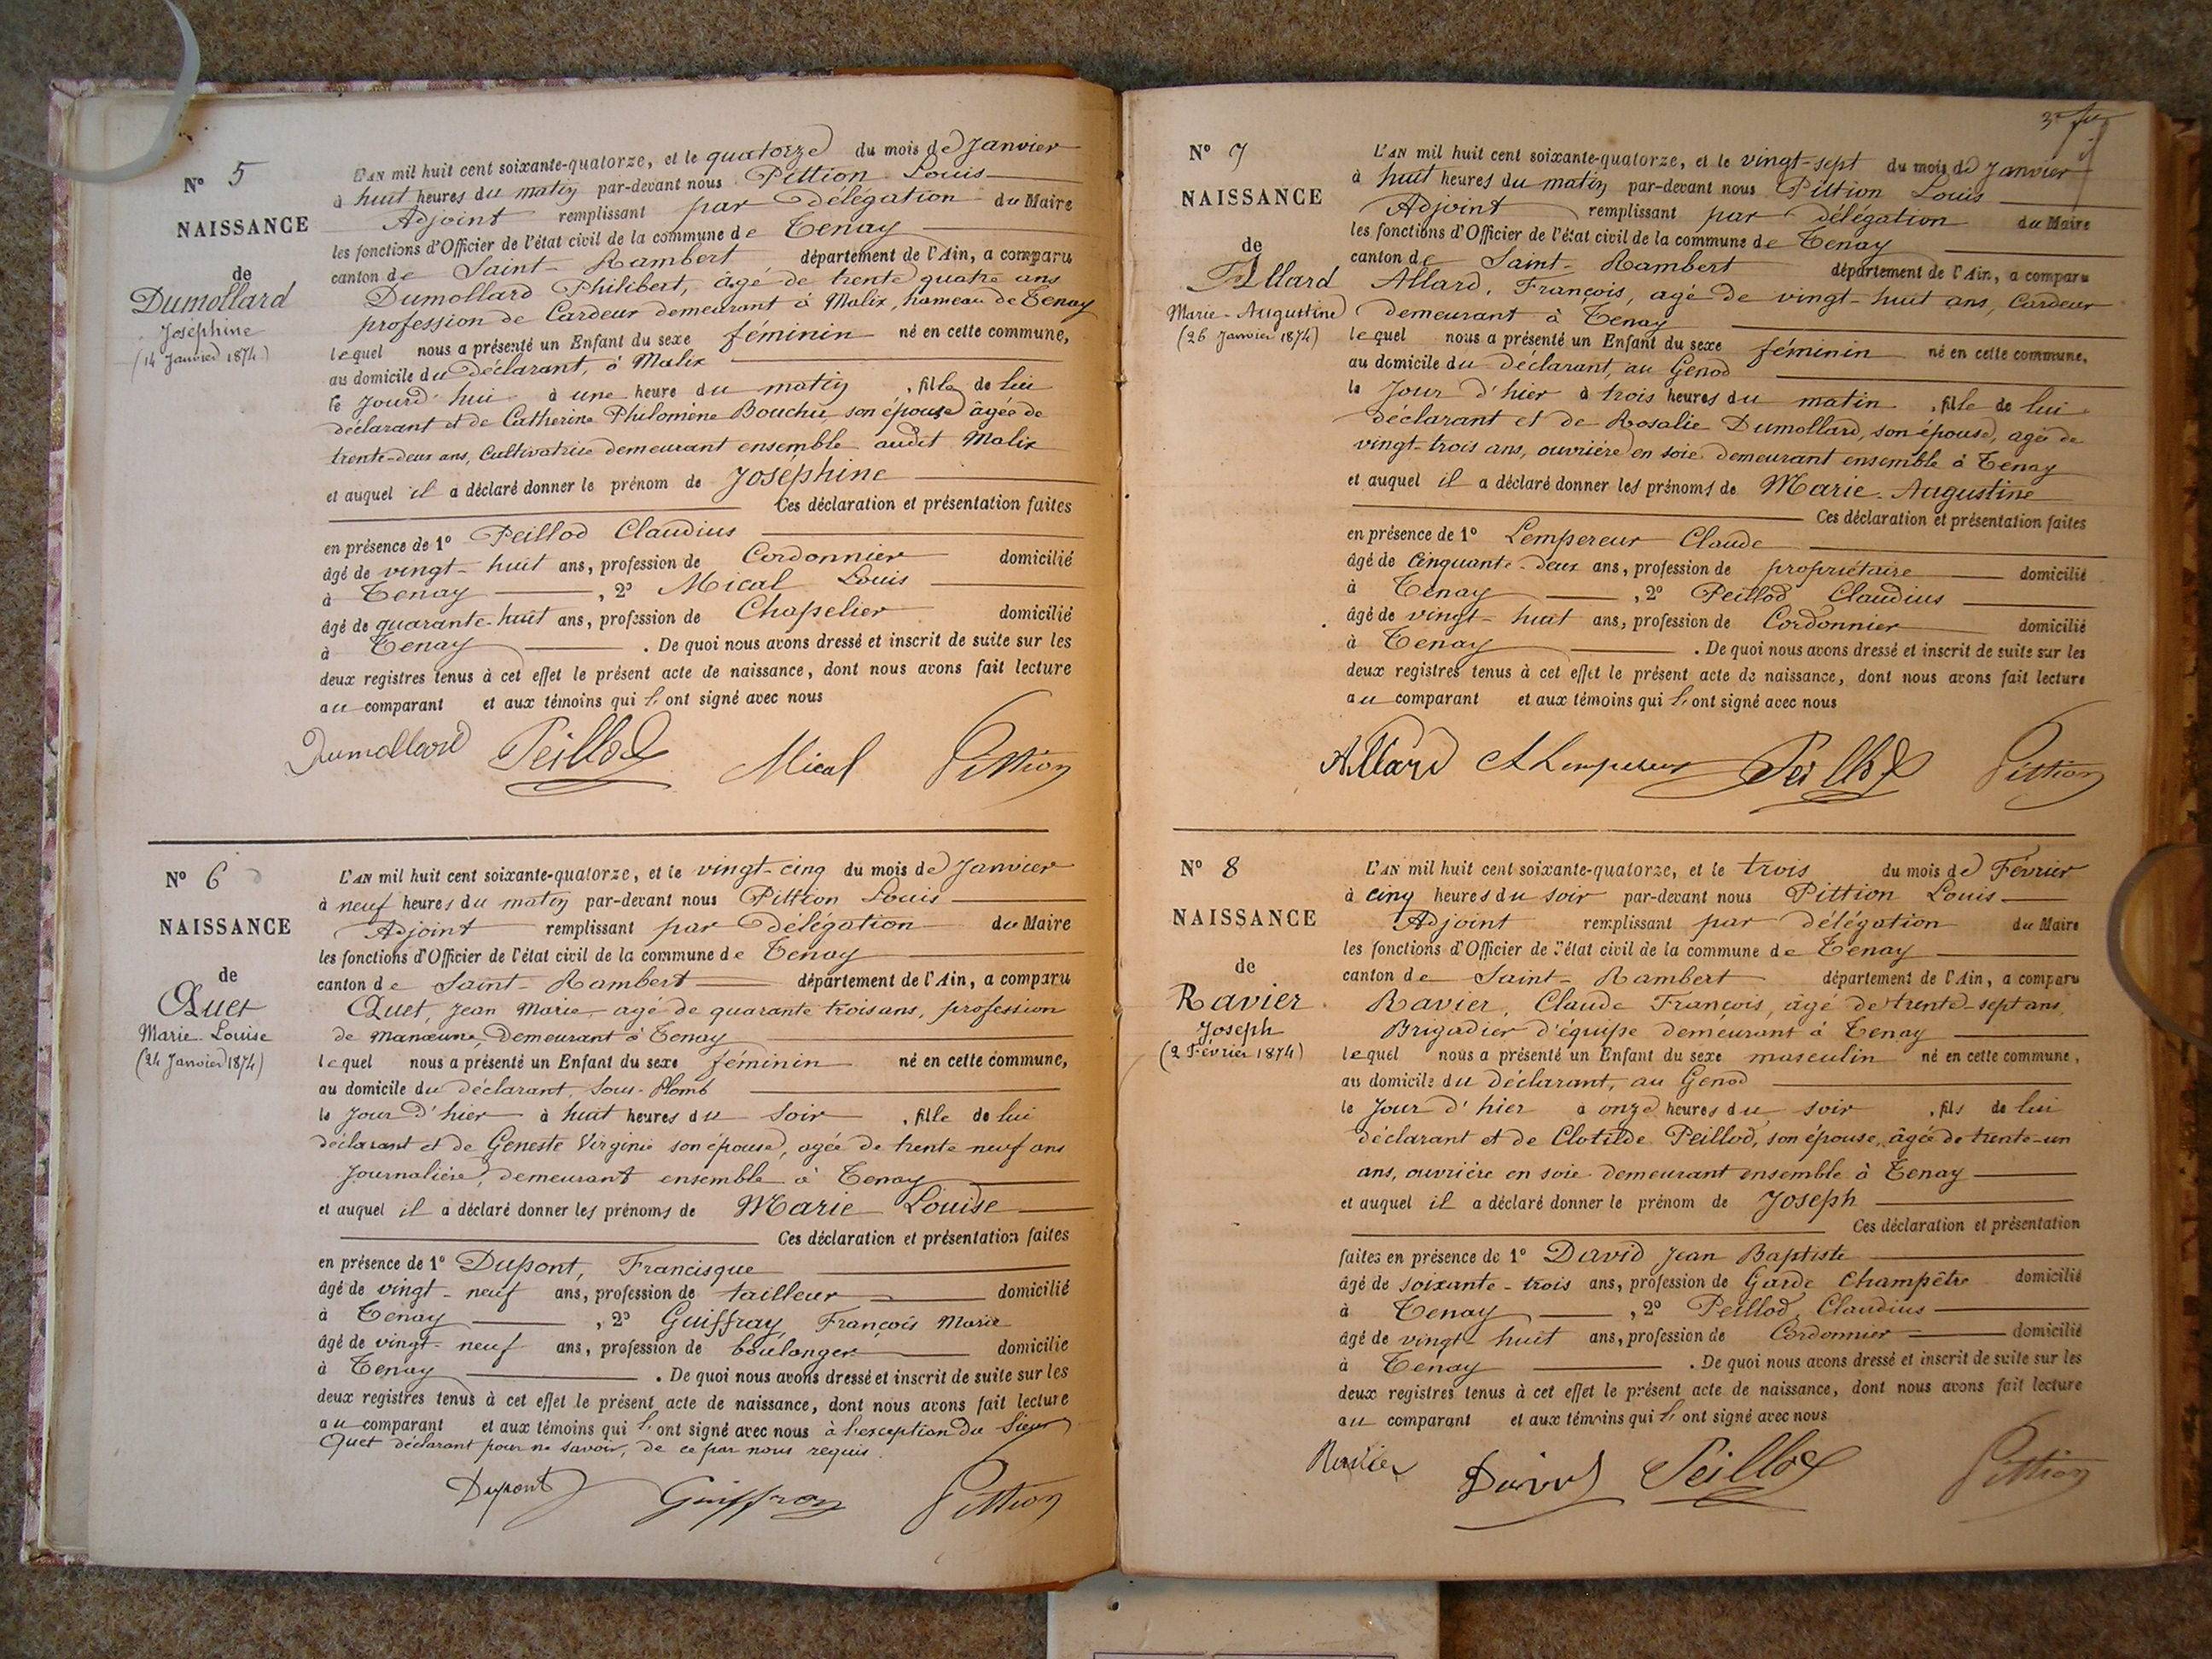 N° 5
NAISSANCE
de
Dumollard
Joséphine
(14 Janvier 1874)
L'AN mil huit cent soixante-quatorze, et le quatorze du mois de Janvier
à huit heures du matin par-devant nous Pittion Louis
Adjoint remplissant par délégation du Maire
les fonctions d'Officier de l'état civil de la commune de Tenay
canton de Saint-Rambert département de l'Ain, a comparu
Dumollard Philibert, âgé de trente quatre ans
profession de Cardeur demeurant à Malix, hameau de Tenay
lequel nous a présenté un Enfant du sexe féminin né en cette commune,
au domicile du déclarant, à Malix
le Jourd'hui à une heure du matin, fille de lui
déclarant et de Catherine Philomène Bouchu, son épouse âgée de
trente-deux ans, Cultivatrice demeurant ensemble audit Malix
et auquel il a déclaré donner le prénom de Joséphine
Ces déclaration et présentation faites
en présence de 1° Peillod Claudius
âgé de vingt-huit ans, profession de Cordonnier domicilié
à Tenay, 2° Mical Louis
âgé de quarante-huit ans, profession de Chapelier domicilié
à Tenay. De quoi nous avons dressé et inscrit de suite sur les
deux registres tenus à cet effet le présent acte de naissance, dont nous avons fait lecture
au comparant et aux témoins qui l'ont signé avec nous
Dumollard Peillod Mical Pittion
N° 6
NAISSANCE
de
Quet
Marie-Louise
(24 Janvier 1874)
L'AN mil huit cent soixante-quatorze, et le vingt-cinq du mois de Janvier
à neuf heures du matin par-devant nous Pittion Louis
Adjoint remplissant par délégation du Maire
les fonctions d'Officier de l'état civil de la commune de Tenay
canton de Saint-Rambert département de l'Ain, a comparu
Quet, Jean Marie âgé de quarante trois ans, profession
de Manœuvre, Demeurant à Tenay
lequel nous a présenté un Enfant du sexe féminin né en cette commune,
au domicile du déclarant, Sous-Plomb
le Jour d'hier à huit heures du soir, fille de lui
déclarant et de Geneste Virginie son épouse, agée de trente neuf ans
Journalière, demeurant ensemble à Tenay
et auquel il a déclaré donner les prénoms de Marie Louise
Ces déclaration et présentation faites
en présence de 1° Dupont, Francisque
âgé de vingt-neuf ans, profession de tailleur domicilié
à Tenay, 2° Guiffray, François Marie
âgé de vingt-neuf ans, profession de boulanger domicilié
à Tenay. De quoi nous avons dressé et inscrit de suite sur les
deux registres tenus à cet effet le présent acte de naissance, dont nous avons fait lecture
au comparant et aux témoins qui l'ont signé avec nous à l'exception du Sieur
Quet déclarant pour ne savoir, de ce par nous requis.
Dupont Guiffray Pittion
N° 7
NAISSANCE
de
Allard
Marie-Augustine
(26 Janvier 1874)
L'AN mil huit cent soixante-quatorze, et le vingt-sept du mois de Janvier
à huit heures du matin par-devant nous Pittion Louis
Adjoint remplissant par délégation du Maire
les fonctions d'Officier de l'état civil de la commune de Tenay
canton de Saint-Rambert département de l'Ain, a comparu
Allard, François, agé de vingt-huit ans, Cardeur
demeurant à Tenay
lequel nous a présenté un Enfant du sexe féminin né en cette commune,
au domicile du déclarant, au Genod
le Jour d'hier à trois heures du matin, fille de lui
déclarant et de Rosalie Dumollard, son épouse, agée de
vingt-trois ans, ouvrière en soie demeurant ensemble à Tenay
et auquel il a déclaré donner les prénoms de Marie-Augustine
Ces déclaration et présentation faites
en présence de 1° Lempereur Claude
âgé de Cinquante-deux ans, profession de propriétaire domicilié
à Tenay, 2° Peillod Claudius
âgé de vingt-huit ans, profession de Cordonnier domicilié
à Tenay. De quoi nous avons dressé et inscrit de suite sur les
deux registres tenus à cet effet le présent acte de naissance, dont nous avons fait lecture
au comparant et aux témoins qui l'ont signé avec nous
Allard Lempereur Peillod Pittion
N° 8
NAISSANCE
de
Ravier
Joseph
(2 Février 1874)
L'AN mil huit cent soixante-quatorze, et le trois du mois de Février
à cinq heures du soir par-devant nous Pittion Louis
Adjoint remplissant par délégation du Maire
les fonctions d'Officier de l'état civil de la commune de Tenay
canton de Saint-Rambert département de l'Ain, a comparu
Ravier, Claude François, âgé de trente-sept ans,
Brigadier d'équipe demeurant à Tenay
lequel nous a présenté un Enfant du sexe masculin né en cette commune,
au domicile du déclarant, au Genod
le Jour d'hier à onze heures du soir, fils de lui
déclarant et de Clotilde Peillod, son épouse, âgée de trente-un
ans, ouvrière en soie demeurant ensemble à Tenay
et auquel il a déclaré donner le prénom de Joseph
Ces déclaration et présentation
faites en présence de 1° David Jean Baptiste
âgé de soixante-trois ans, profession de Garde Champêtre domicilié
à Tenay, 2° Peillod, Claudius
âgé de vingt-huit ans, profession de Cordonnier domicilié
à Tenay. De quoi nous avons dressé et inscrit de suite sur les
deux registres tenus à cet effet le présent acte de naissance, dont nous avons fait lecture
au comparant et aux témoins qui l'ont signé avec nous
Ravier David Peillod Pittion